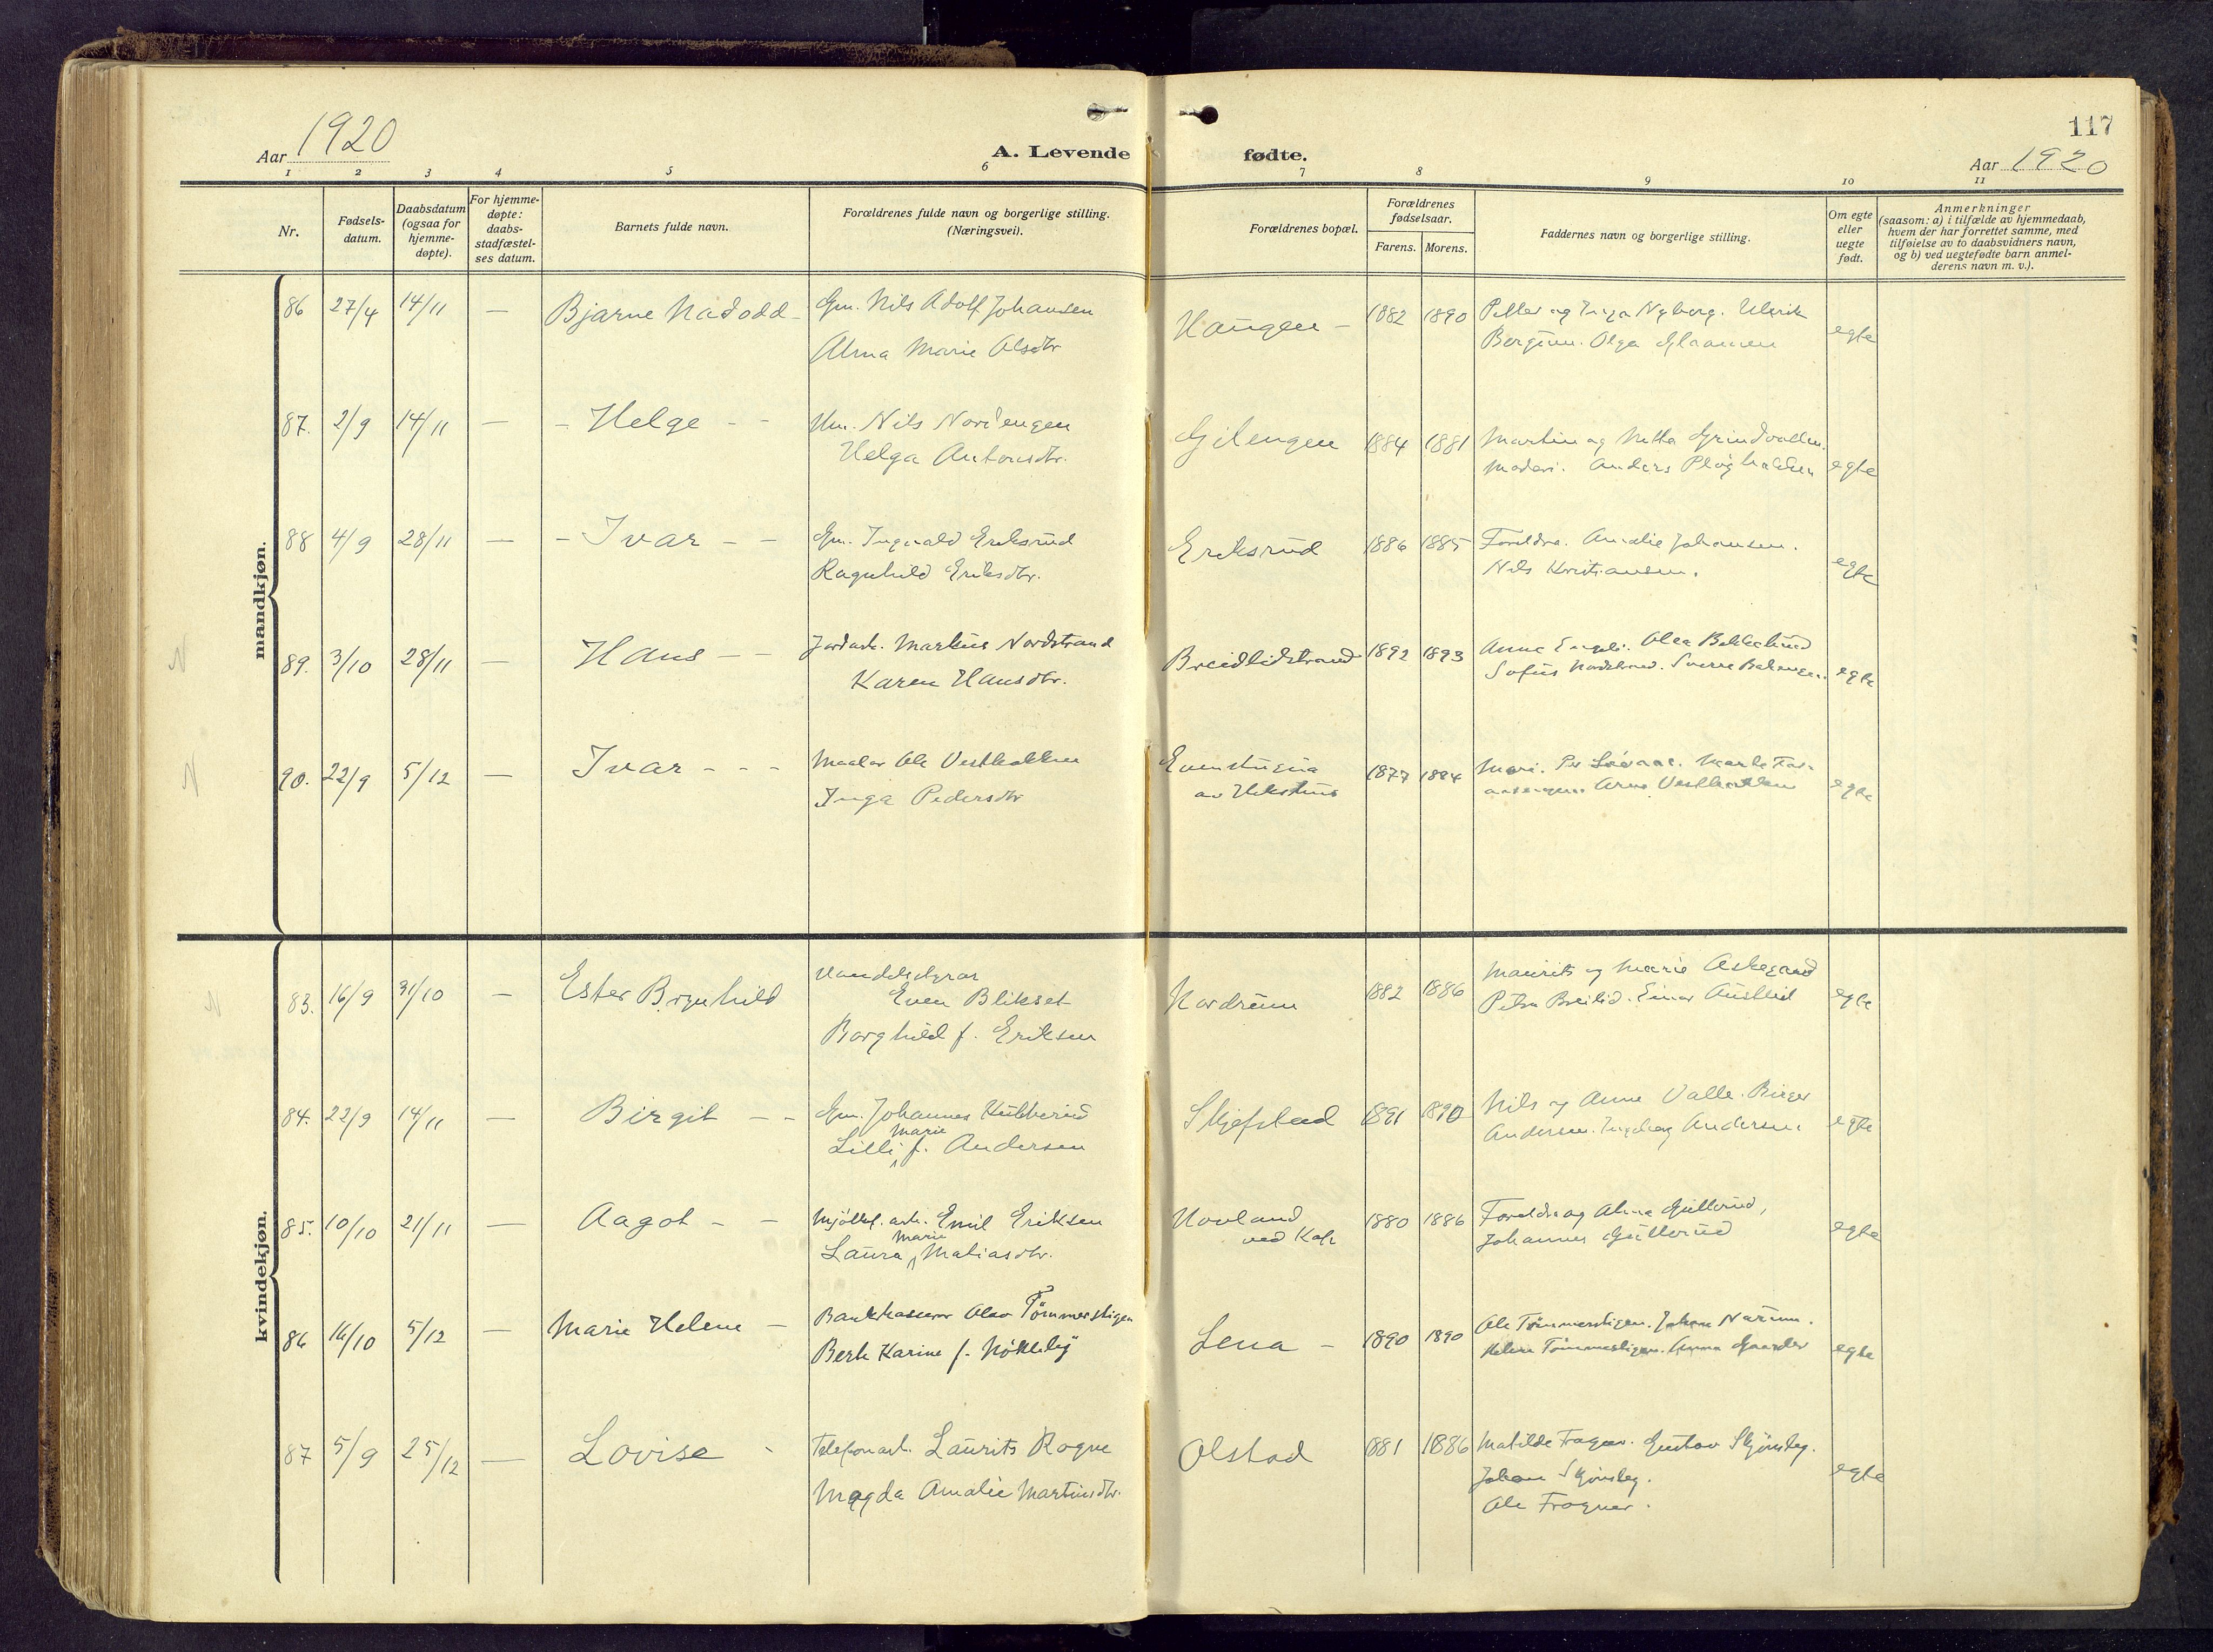 117
Aar 1920
A. Levende fødte.
Aar 1920
1 2 3 4 5 6 7 8 9 10 11
Nr.
Fødsels-
datum.
Daabsdatum
(ogsaa for
hjemme-
døpte).
For hjemme-
døpte:
daabs-
stadfæstel-
ses datum.
Barnets fulde navn.
Forældrenes fulde navn og borgerlige stilling.
(Næringsvei).
Forældrenes bopæl.
Forældrenes
fødselsaar.
Farens. Morens.
Faddernes navn og borgerlige stilling.
Om egte
eller
uegte
født.
Anmerkninger
(saasom: a) i tilfælde av hjemmedaab,
hvem der har forrettet samme, med
tilføielse av to daabsvidners navn,
og b) ved uegtefødte barn anmel-
derens navn m. v.).
mandkjøn.
86 27/4 14/11 — Bjarne Nadodd - Gm. Nils Adolf Johansen
Alma Marie Olsdtr
Haugen - 1882 1890 Petter og Inga Nyborg. Ulrik
Bergum. Olga
egte
87. 2/9 14/11 — - Helge - - Hm. Nils Nordengen
Helga Antonsdtr.
Gilengen 1884 1881 Martin og Netta Grindvollen.
Moderi. Anders
egte
88 4/9 28/11 — - Ivar - - Gm. Ingvald Eriksrud
Ragnhild Eriksdtr.
Eriksrud 1886 1885 Foreldre. Amalie Johansen.
Nils Kristiansen.
egte
89. 3/10 28/11 — Hans - - Jordarb. Markus Nordstrand
Karen Hansdtr.
Breidlidstrand 1892 1893 Anna Engeli. Olea Bekkelund
Sofus Nordstrand. Sverre
egte
90. 22/9 5/12 — Ivar - - - Maaler Ole Vestbakken
Inga Pedersdtr
Evenstugua
av Hekshus
1877 1884 Mari. Per
Arne Vestbakken
egte
kvindekjøn.
83. 16/9 31/10 — Ester Brynhild Handelsbyrer
Even Blikset
Borghild f. Eriksen
Nordrum 1882 1886 Maurits og Marie Askegaard
Petra Breilid. Einar Austlid
egte
84. 22/9 14/11 — Birgit - - Gm. Johannes Kubberud
Marie
Lilli f. Andersen
Skjefstad 1891 1890 Nils og Anne Valle. Birger
Andersen. Ingeborg Andersen
egte
85. 10/10 21/11 — Aagot - - Mjölkef. arb. Emil Eriksen
Marie
Laura Matiasdtr.
Hovland
ved Kap
1880 1886 Foreldre og Alma Gullerud,
Johannes Gullerud
egte
86 16/10 5/12 — Marie Helene - Bankkasserer Olav Tömmerstigen
Berte Karine f. Nökleby
Lena - 1890 1890 Ole Tömmerstigen. Johan Narum.
Helene Tömmerstigen. Anna Gaarder
egte
87 5/9 25/12 — Lovise - Telefonarb. Laurits Rogne
Magda Amalie Martinsdtr.
Olstad 1881 1886 Matilde Frogner. Gustav Skjönsby.
Johan Skjönsby.
Ole Frogner.
egte